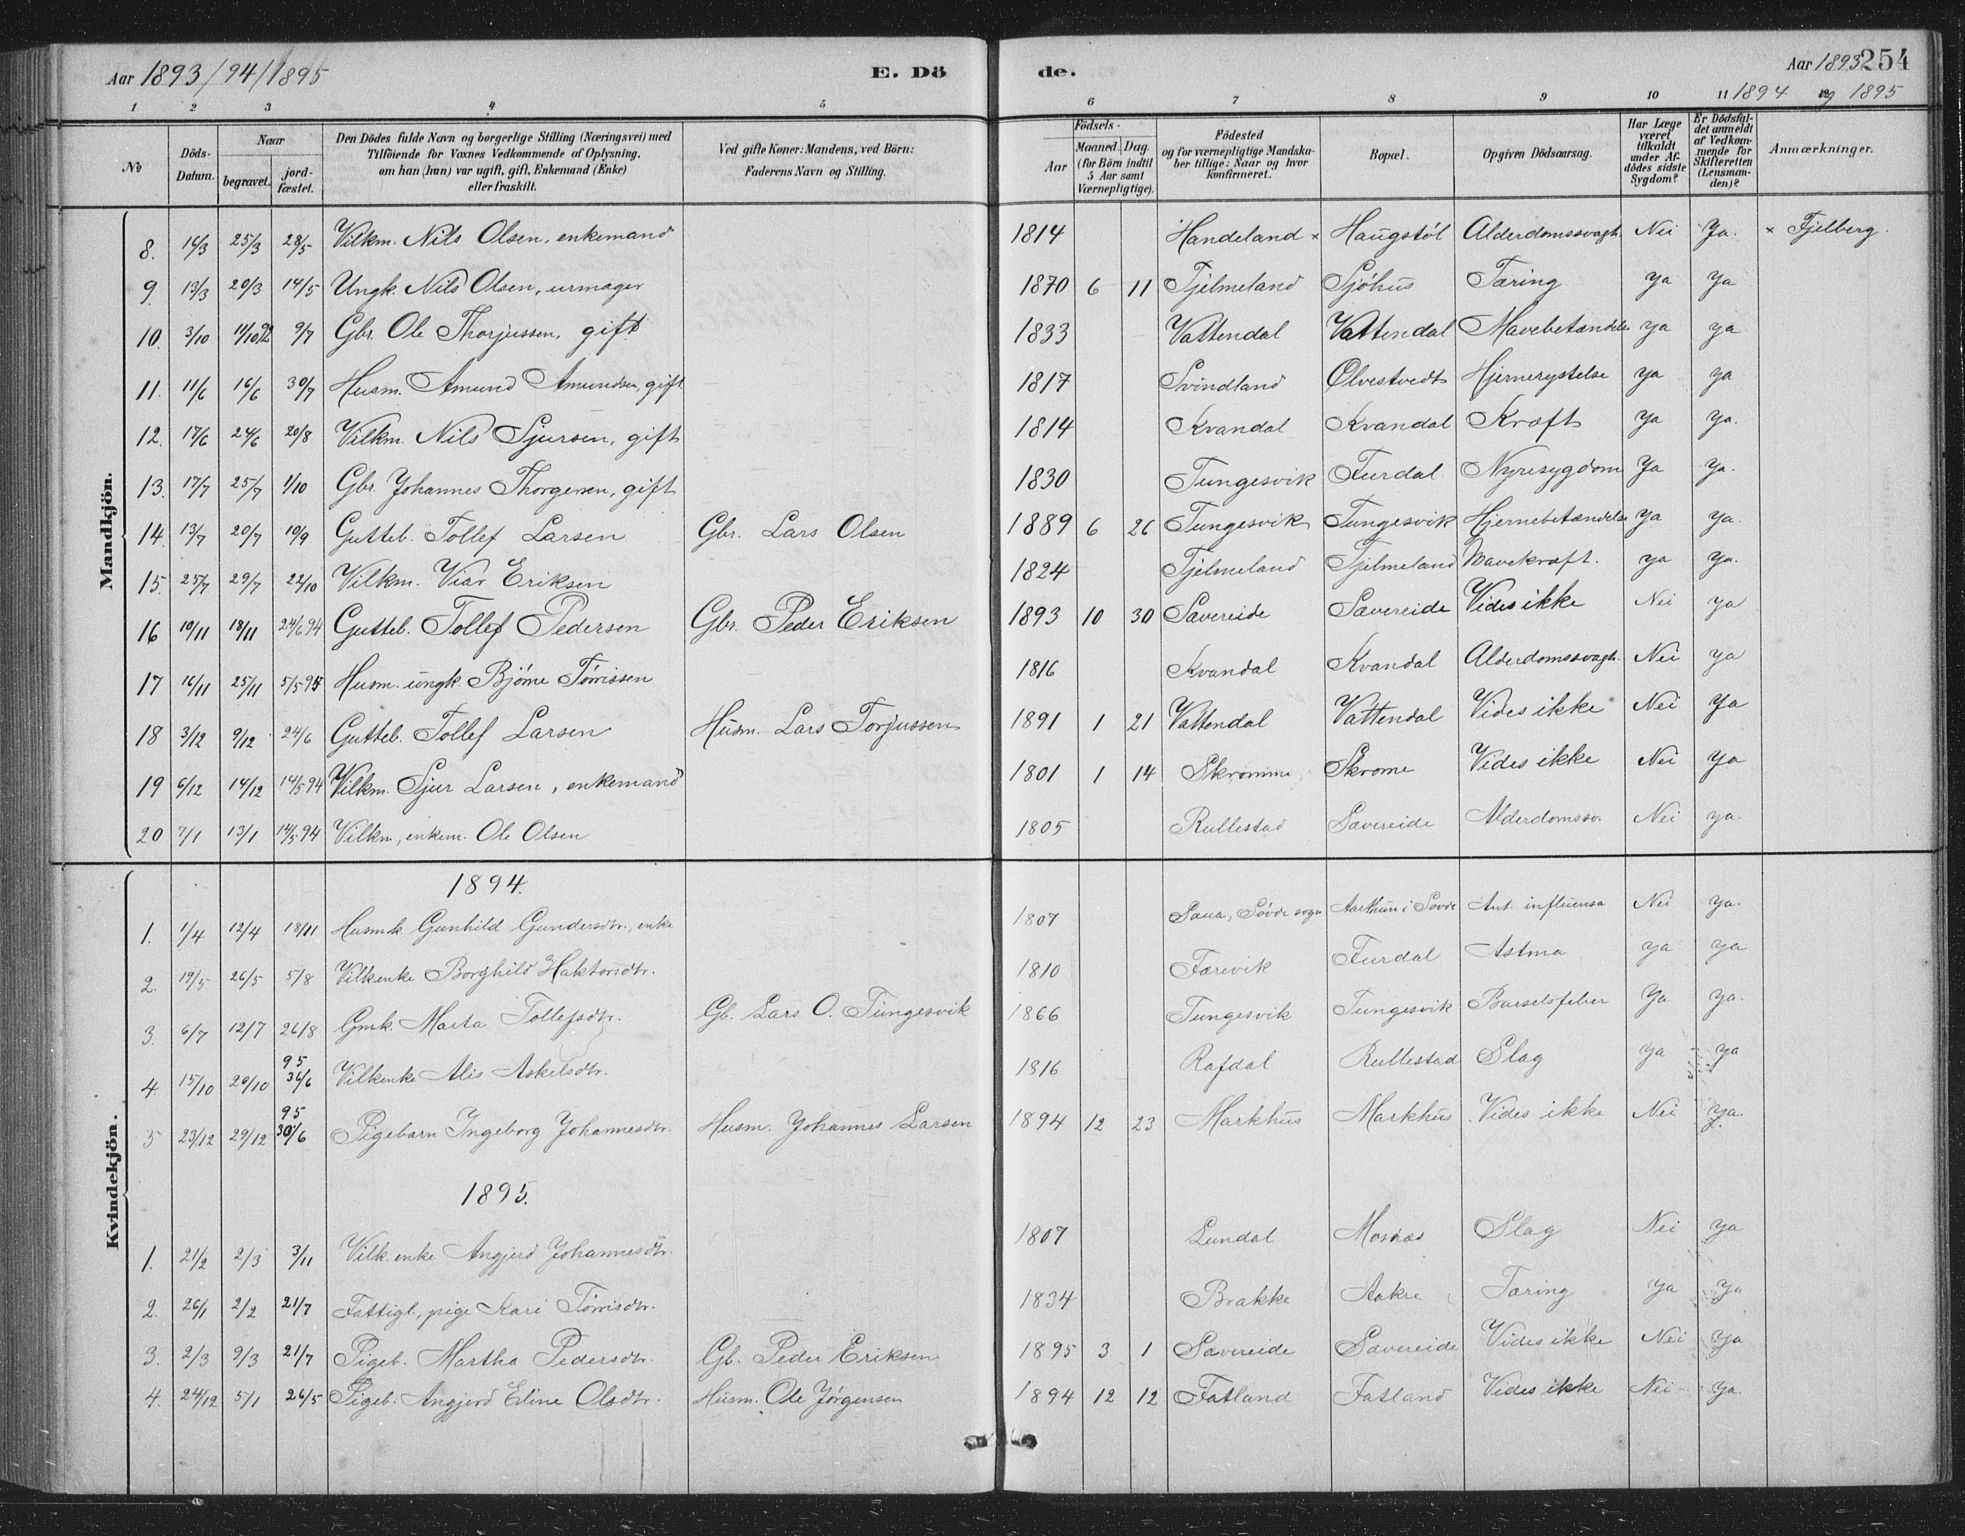 Aar 1893/94/1895 E. Dö de. Aar 1893 254
1894 og 1895
1 2 3 4 5 6 7 8 9 10 11 12
No
Döds-Datum.
Naar
begravet.
jord-fæstet.
Den Dödes fulde Navn og borgerlige Stilling (Næringsvei) med
Tilföiende for Voxnes Vedkommende af Oplysning,
om han (hun) var ugift, gift, Enkemand (Enke)
eller fraskilt.
Ved gifte Koner: Mandens, ved Börn:
Faderens Navn og Stilling.
Födsels-
Aar
Maaned. Dag.
(for Börn indtil
5 Aar samt
Værnepligtige).
Födested
og for værnepligtige Mandska-
ber tillige: Naar og hvor
konfirmeret.
Bopæl.
Opgiven Dödsaarsag.
Har Læge
været
tilkaldt
under Af-
dödes sidste
Sygdom?
Er Dödsfal-
det anmeldt
af Vedkom-
mende for
Skifteretten
(Lensman-
den)?
Anmærkninger.
Mandkjön.
8. 16/3 25/3 28/5 Vilkm. Nils Olsen, enkemand 1814 Handeland × Haugstøl Alderdomssvagh. Nei Ja. × Fjelberg.
9. 13/3 20/3 14/5 Ungk. Nils Olsen, urmager 1870 6 11 Fjelmeland Sjöhus Tæring ya ya
10. 3/10 11/10 92 9/7 Gbr. Ole Thorjussen, gift 1833 Vattendal Vattendal Mavebetændelse ya ya
11. 11/6 16/6 30/7 Husm. Amund Amundsen, gift 1817 Svindland Ølvestvedt Hjernerystelse ya ya
12. 17/6 24/6 20/8 Vilkm. Nils Sjursen, gift 1814 Kvandal Kvandal Kræft ya ya.
13. 17/7 25/7 1/10 Gbr. Johannes Thorgersen, gift 1830 Tungesvik Furdal Nyresygdom Ya Ya.
14. 13/7 20/7 10/9 Gutteb. Tollef Larsen Gbr. Lars Olsen 1889 6 26 Tungesvik Tungesvik Hjernebetændelse ya ya.
15. 25/7 29/7 22/10 Vilkm. Viar Eriksen 1824 Fjelmeland Fjelmeland Mavekræft. ya ya.
16 10/11 18/11 24/6 94 Gutteb. Tollef Pedersen Gbr. Peder Eriksen 1893 10 30 Sævereide Sævereide Vides ikke Nei ya
17 16/11 25/11 5/5 95 Husm. ungk. Bjørne Tørrissen 1816 Kvandal Kvandal Alderdomssvagh. Nei ya
18 3/12 9/12 24/6 Gutteb. Tollef Larsen Husm. Lars Torjussen 1891 1 21 Vattendal Vattendal Vides ikke Nei Ya
19 6/12 14/12 14/5 94 Vilkm. Sjur Larsen, enkemand 1801 1 14 Skromme Skrome Vides ikke Nei ya
20 7/1 13/1 14/5 94 Vilkm, enkem. Ole Olsen 1805 Rullestad Sævereide Alderdomssv. Nei ya.
Kvindekjön.
1894.
1. 1/4 12/4 18/11 Husmk Gunhild Gundersdtr., enke 1807 Saua, Søvde sogn Aarthun i Søvde Ant. influensa Nei ya.
2. 19/5 26/5 5/8 Vilkenke Borghild Haktorsdtr. 1810 Færevik Furdal Astma ya ya
3. 6/7 12/7 26/8 Gmk. Marta Tollefsdtr. Gb. Lars O. Tungesvik 1866 Tungesvik Tungesvik Barselsfeber Ya ya.
4. 15/10 20/10 95 36/6 Vilkenke Alis Askelsdtr. 1816 Rafdal Rullestad Slag ya ya
5 23/12 29/12 95 30/6 Pigebarn Ingeborg Johannesdtr. Husm. Johannes Larsen 1894 12 23 Markhus Markhus Vides ikke Nei ya.
1895.
1. 21/2 2/3 3/11 Vilk. enke Angjerd Johannesdtr. 1807 Lundal Mosnæs Slag Nei ya
2. 26/1 2/2 21/7 Fattigl., pige Kari Tørrisdtr. 1834 Brakke Aakre Tæring ya ya
3. 2/3 9/3 21/7 Pigeb. Martha Pedersdtr. Gb. Peder Eriksen 1895 3 1 Sævereide Sævereide Vides ikke Nei ya
4. 24/12 5/1 26/5 Pigeb. Angjerd Eline Olsdtr. Husm. Ole Jørgensen 1894 12 12 Fatland Fatland Vides ikke Nei ya.